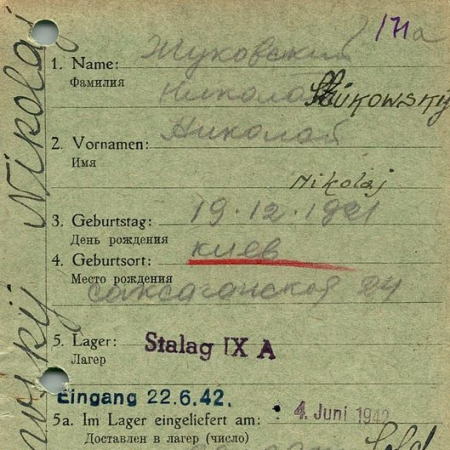 171a
1. Name: Жуковский
Фамилия
Николай Shukowskij
2. Vornamen: Николай
Имя
Nikolaj
3. Geburtstag: 19.12.1921
День рождения
4. Geburtsort: Киев
Место рождения
Саксаганской 24
5. Lager: Stalag IX A
Лагер
Eingang 22.6.42.
5a. Im Lager eingeliefert am: 4. Juni 1942
Доставлен в лагер (число)
Sold
Nikolaj